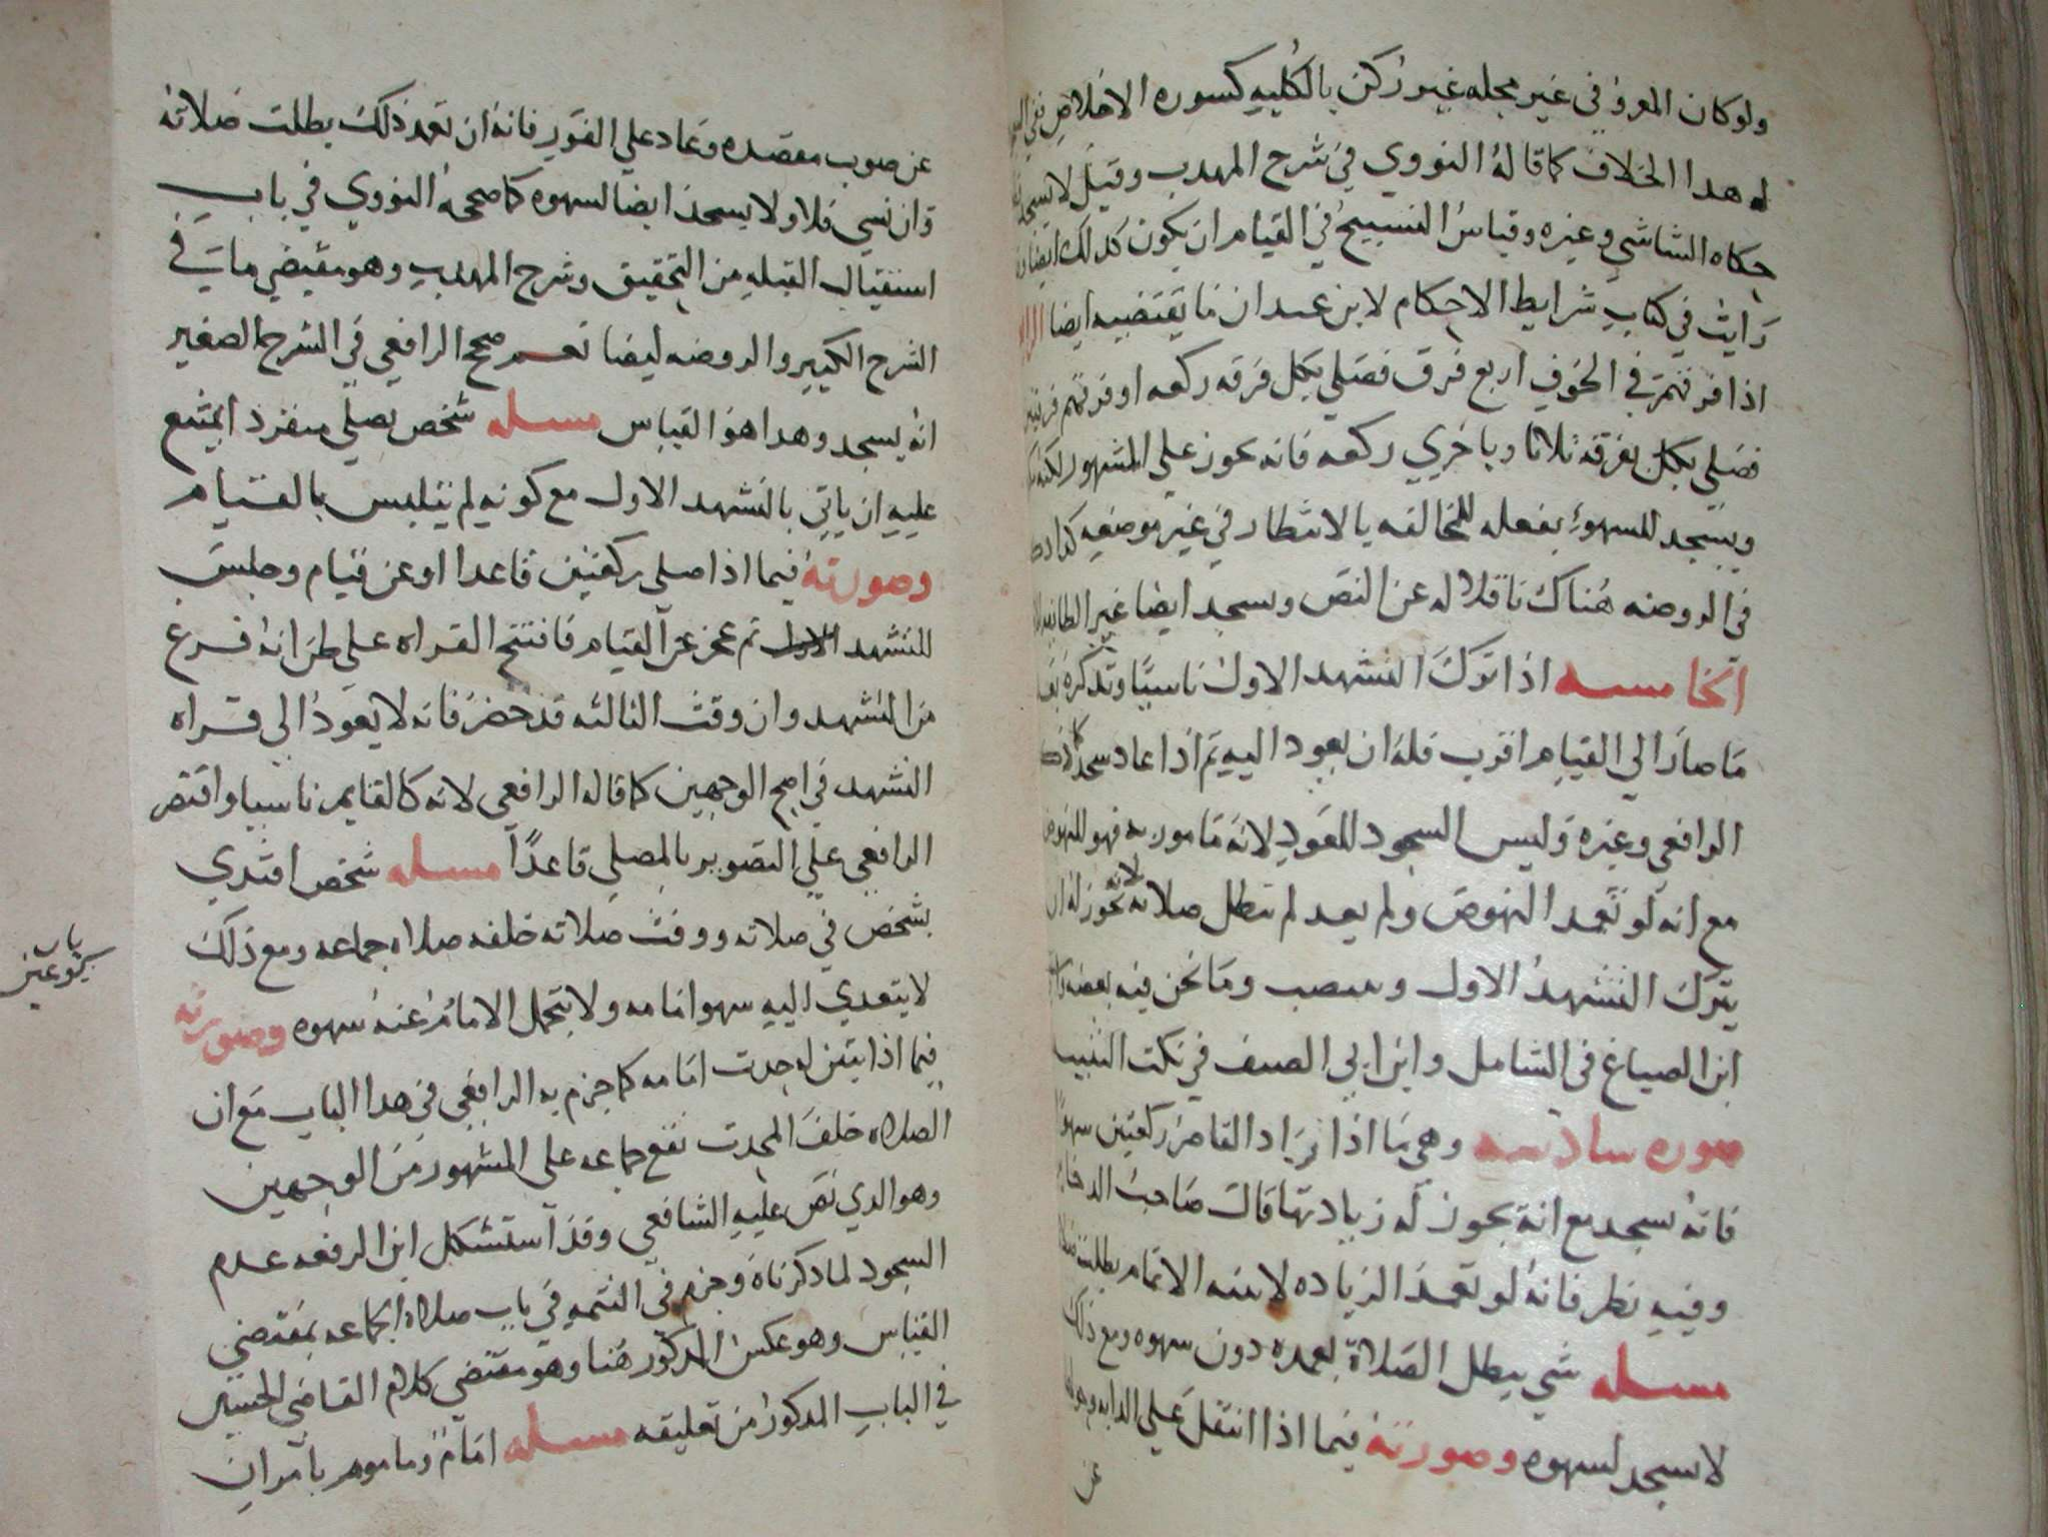 ولو كان المقروفي غير محله غير ركن بالكليه كسوره الاخلاص ففي
له هدا الخلاف كما قاله النووي في شرح المهدب وقيل لا يسجد
حكاه الشاشي وغيره وقياس التسبيح في القيام ان يكون كدلك ايضا
رايت في كتاب شرايط الاحكام لابن عبدان ما يقتضيه ايضا
اذا فرقتهم في الخوف اربع فرق فصلي بكل فرقه ركعه او فرقهم فرقتين
فصلي بكل فرقه ثلاثا وباخري ركعه فانه يجوز علي المشهور لكنه
ويسجد للسهو بفعله للمخالفه بالانتظار في غير موضعه كدا
في الروضه هناك ناقلا له عن النص ويسجد ايضا غير الطايفه
الخامسه اذا ترك التشهد الاول ناسيا وتذكره
ما صار الي القيام اقرب فله ان يعود اليه ثم اذا عاد سجد كما
الرافعي وغيره وليس السجود للعود لانه مامور به فهو للنهوض
مع انه لو تعمد النهوض ولم يعد لم تبطل صلاته لانه يجوز له ان
يترك التشهد الاول وينتصب وما نحن فيه بعضه
ابن الصباغ في الشامل وابن ابي الصيف في نكت التنبيه
صوره سادسه وهي ما اذا زاد القاصر ركعتين سهوا
فانه يسجد مع انه يجوز له زيادتها قال صاحب الدخاير
وفيه نظر فانه لو تعمد الزياده لا بنيه الاتمام بطلت
مسله شي يبطل الصلاة بعمده دون سهوه ومع ذلك
لا يسجد لسهوه وصورته فيما اذا انتقل علي الدابه
عن
عن صوب مقصده وعاد علي الفور فانه ان تعمد ذلك بطلت صلاته
وان نسي فلا ولا يسجد ايضا لسهوه كما صححه النووي في باب
استقبال القبله من التحقيق وشرح المهدب وهو مقتضي ما في
الشرح الكبير والروضه ايضا نعم صحح الرافعي في الشرح الصغير
انه يسجد وهدا هو القياس مسله شخص يصلي منفرد ايمتنع
عليه ان ياتي بالتشهد الاول مع كونه لم يتلبس بالقيام
وصورته فيما اذا صلي ركعتين قاعدا او عن قيام وجلس
للتشهد الاول ثم عجز عن القيام فافتتح القراه علي ظن انه فرغ
من التشهد وان وقت الثالثه قد حضر فانه لا يعود الى قراه
التشهد في اصح الوجهين كما قاله الرافعي لانه كالقايم ناسيا واقتصر
الرافعي علي التصوير بالمصلي قاعدا مسله شخص اقتدي
بشخص في صلاته ووقعت صلاته خلفه صلاه جماعه ومع ذلك
لا يتعدي اليه سهو امامه ولا يتحمل الامام عنه سهوه وصورته
فيما اذا تبين له حدث امامه كما جزم به الرافعي في هدا الباب مع ان
الصلاه خلف المحدث تقع جماعه علي المشهور من الوجهين
وهو الدي نص عليه الشافعي وقد استشكل ابن الرفعه عدم
السجود لما دكرناه وجزم في التتمه في باب صلاه الجماعه بمقتضي
القياس وهو عكس المدكور هنا وهو مقتضي كلام القاضي الحسين
في الباب المدكور من تعليقه مسله امام وماموم يامران